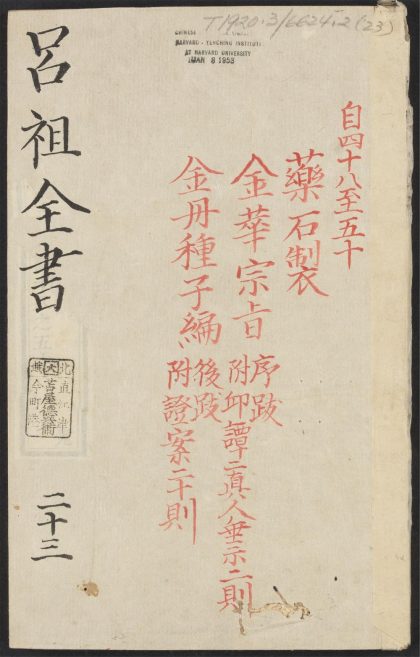 T1920.3/6624.2 (23)
CHINESE
HARVARD-YENCHING INSTITUTE
AT HARVARD UNIVERSITY
8 1953
自四十八至五十
藥石製
金華宗旨 序跋
附邱譚二真人垂示二則
金丹種子編 後跋
附證案二十則
呂祖全書
二十三